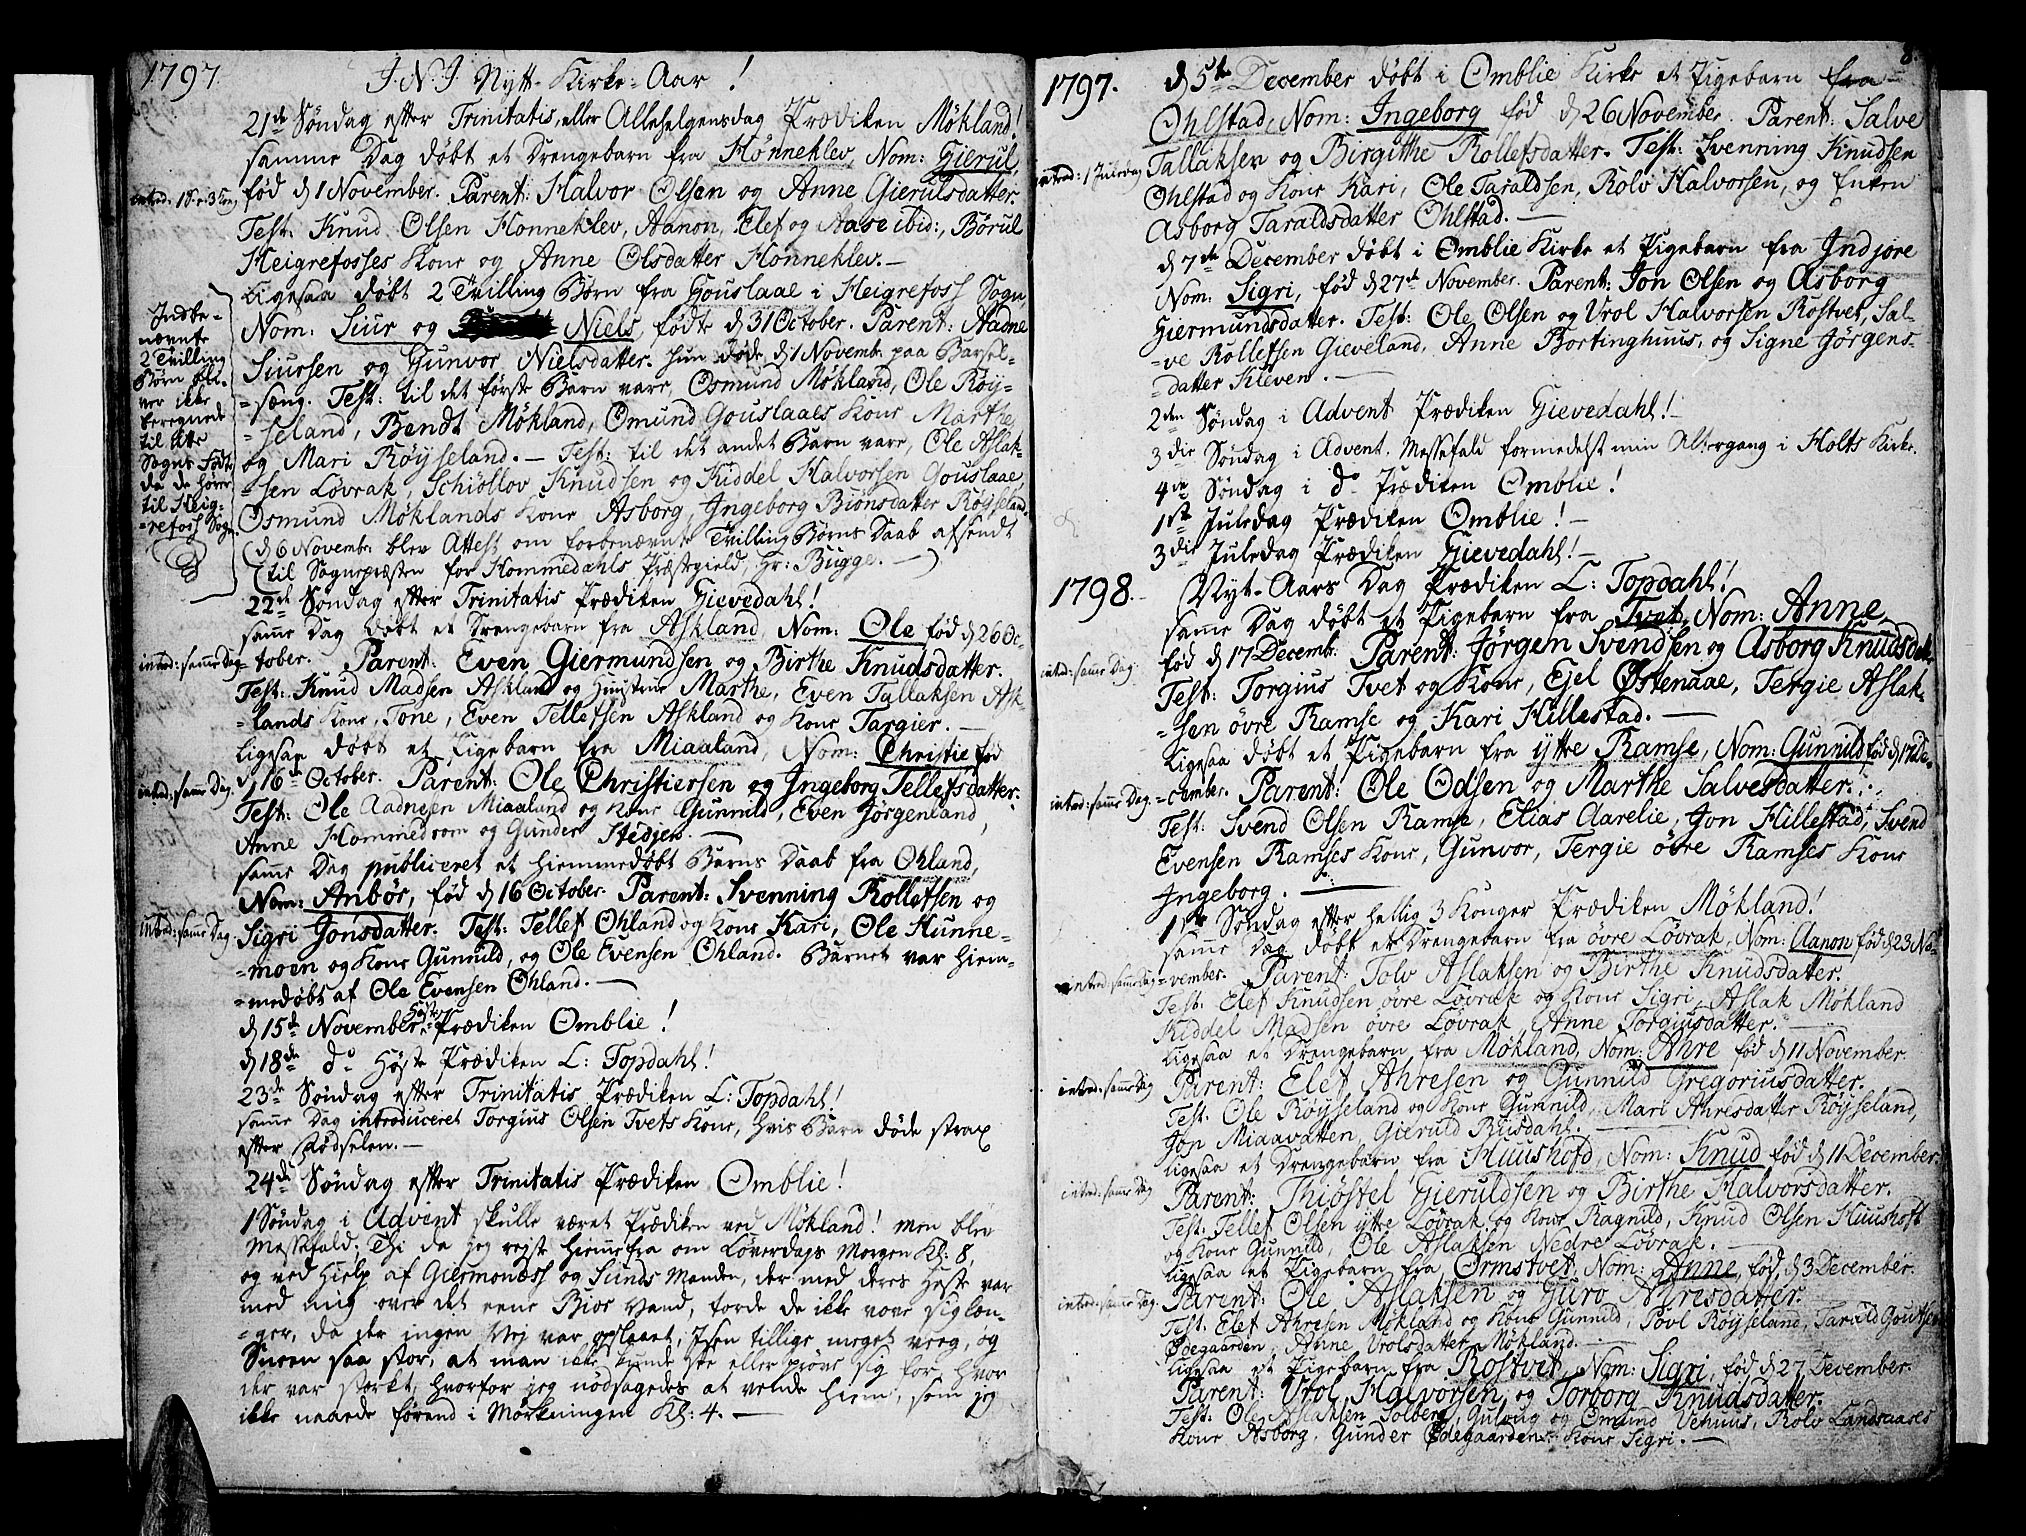 1797.
J. N. J. Nytt-Kirke-Aar!
21de Søndag efter Trinitatis, eller Allehelgensdag Prædiken Møkland!
samme Dag døbt et Drengebarn fra Hønneklev, Nom: Gierul,
født d 1 November. Parent: Halvor Olsen og Anne Gierulsdatter.
Test: Knud Olsen Hønneklev, Aanon, Elef og Aase ibid:, Børul
Heigrefosses Kone og Anne Olsdatter Hønneklev.—
Ligesaa døbt 2 Tvilling Børn fra Gouslaae i Heigrefoss Sogn,
Nom: Siur og Niels, fødte d 31 October. Parent: Aadne
Siursen og Gunvor Nielsdatter. hun døde d 1 Novembr. paa Barsel-
-seng. Test: til det første Barn vare, Osmund Møkland, Ole Røy-
-seland, Bendt Møkland, Omund Gouslaaes Kone Marthe,
og Mari Røyseland.— Test: til det andet Barn vare, Ole Aslak-
-sen Løvrak, Schiøllov Knudsen og Kiddel Halvorsen Gouslaae,
Osmund Møklands Kone Asborg, Ingeborg Biønsdatter Røyseland.
(d 6 Novembr. blev Attest om forbenævnte Tvilling Børns Daab afsendt
til Sognepræsten for Hommedahls Præstegield, Hr: Bugge.—)
22de Søndag efter Trinitatis Prædiken Gievedahl!
samme Dag døbt et Drengebarn fra Askland, Nom: Ole fød d 26 Oc-
-tober. Parent: Even Giermundsen og Birthe Knudsdatter.
Test: Knud Madsen Askland og Hustrue Marthe, Even Tallaksen Ask-
-lands Kone, Tone, Even Tellefsen Askland og Kone Targier.—
Ligesaa døbt et Pigebarn fra Miaaland, Nom: Christie fød
d 16de October. Parent: Ole Christiersen og Ingeborg Tellefsdatter.
Test: Ole Aadnesen Miaaland og Kone Gunnild, Even Jørgenland,
Anne Hommedrom og Gunder Stedjen.—
samme Dag publiceret et hiemmedøbt Barns Daab fra Ohland,
Nom: Anbør, fød d 16 October. Parent: Svenning Rollefsen og
Sigri Jonsdatter. Test: Tellef Ohland og Kone Kari, Ole Hunne-
-moen og Kone Gunnild, og Ole Evensen Ohland. Barnet var hiem-
-medøbt af Ole Evensen Ohland.—
d 15de November Høst Prædiken Omblie!
d 18de do Høste Prædiken L: Topdahl!
23de Søndag efter Trinitatis Prædiken L: Topdahl!
samme Dag introduceret Torgius Olsen Tvets Kone, hvis Barn døde strax
efter Fødselen.—
24de Søndag efter Trinitatis Prædiken Omblie!
1 Søndag i Advent skulle været Prædiken ved Møkland! men blev
Messefald; Thi da jeg reiste hiemmefra om Løverdags Morgen Kl: 8,
og ved Hielp af Giermondss og Sunds Manden, der med deres Heste var
med mig over det eene Bior Vand, torde de ikke vove sig læn-
-ger, da der ingen Vej var opslaaet, Isen tillige meget veeg, og
Sneen saa stor, at man ikke kunde see eller prøve sig for, hvor
der var sterkt, hvorfor jeg nødsagedes at vende hiem, som jeg
ikke naaede førend i Mørkningen Kl: 4.—
intred: 1 S: e: 3 Kong
Indbe-
nævnte
2 Tvilling
Børn bli-
ver ikke
beregnede
til dette
Sogns Fødte
da de hører
til Heig-
-refoss Sogn.
intred: samme Dag
intred: samme Dag.
intred: samme Dag
8.
1797.
d 5te December døbt i Omblie Kirke et Pigebarn fra
Ohlstad, Nom: Ingeborg fød d 26 November. Parent: Salve
Tallaksen og Birgithe Rollefsdatter. Test: Svenning Knudsen
Ohlstad og Kone Kari, Ole Taraldsen, Rolv Halvorsen, og Enken
Asborg Taraldsdatter Ohlstad.—
d 7de December døbt i Omblie Kirke et Pigebarn fra Indjore
Nom: Sigri, fød d 27de November. Parent: Jon Olsen og Asborg
Giermundsdatter. Test: Ole Olsen og Vrol Halvorsen Rostvet, Sal-
-ve Rollefsen Gieveland, Anne Bortinghuus, og Signe Jørgens-
-datter Kleven.—
2den Søndag i Advent Prædiken Gievedahl!—
3die Søndag i Advent. Messefald formedelst min Altergang i Holts Kirke.
4de Søndag i do Prædiken Omblie!
1ste Juledag Prædiken Omblie!—
3die Juledag Prædiken Gievedahl!—
1798.
Nyt-Aars Dag Prædiken L: Topdahl!
samme Dag døbt et Pigebarn fra Tvet, Nom: Anne,
fød d 17 Decembr. Parent: Jørgen Svendsen og Asborg Knudsdat-
Test: Torgius Tvet og Kone, Ejel Østenaae, Tergie Aslak-
-sen øvre Ramse og Kari Hillestad.—
Ligesaa døbt et Pigebarn fra ytte Ramse, Nom: Gunnild fød d 17 De-
-cember. Parent: Ole Odsen og Marthe Salvesdatter.
Test: Svend Olsen Ramse, Elias Aarelie, Jon Hillestad, Svend
Evensen Ramses Kone, Gunvor, Tergie øvre Ramses Kone
Ingeborg.—
1ste Søndag efter hellig 3 Konger Prædiken Møkland!
samme Dag døbt et Drengebarn fra øvre Løvrak, Nom: Aanon fød d 23 No-
-vember. Parent: Tolv Aslaksen og Birthe Knudsdatter.
Test: Elef Knudsen øvre Løvrak og Kone Sigri, Aslak Møkland
Kiddel Madsen øvre Løvrak, Anne Torgiusdatter.—
Ligesaa et Drengebarn fra Møkland, Nom: Ahre fød d 11 November.
Parent: Elef Ahresen og Gunnild Gregoriusdatter.
Test: Ole Røyseland og Kone Gunnild, Mari Ahresdatter Røyseland,
Jon Miaavatten, Gieruld Risdahl.—
Ligesaa et Drengebarn fra Huushofd, Nom: Knud fød d 11 December.
Parent: Thiøstel Gieruldsen og Birthe Halvorsdatter.
Test: Tellef Olsen ytte Løvrak og Kone Ragnild, Knud Olsen Huushoft
og Kone Gunnild, Ole Aslaksen Nedre Løvrak.—
Ligesaa et Pigebarn fra Ormstvet, Nom: Anne, fød d 3 December.
Parent: Ole Aslaksen og Guro Ahresdatter.
Test: Elef Ahresen Møkland og Kone Gunnild, Povl Røyseland, Tarald
Ødegaarden, Anne Vrolsdatter Møkland.—
Ligesaa et Pigebarn fra Rostvet, Nom: Sigri, fød d 27 December.
Parent: Vrol Halvorsen og Torborg Knudsdatter.
Test: Ole Aslaksen Solberg, Guloug og Omund Vehuus, Rolv Landsaaes
Kone Asborg, Gunder Ødegaardens Kone Sigri.—
introd: 1 Juledag
intred: samme Dag.
intred: samme Dag.
intred: samme Dag
intred: samme Dag
intred: samme Dag
intred: samme Dag.